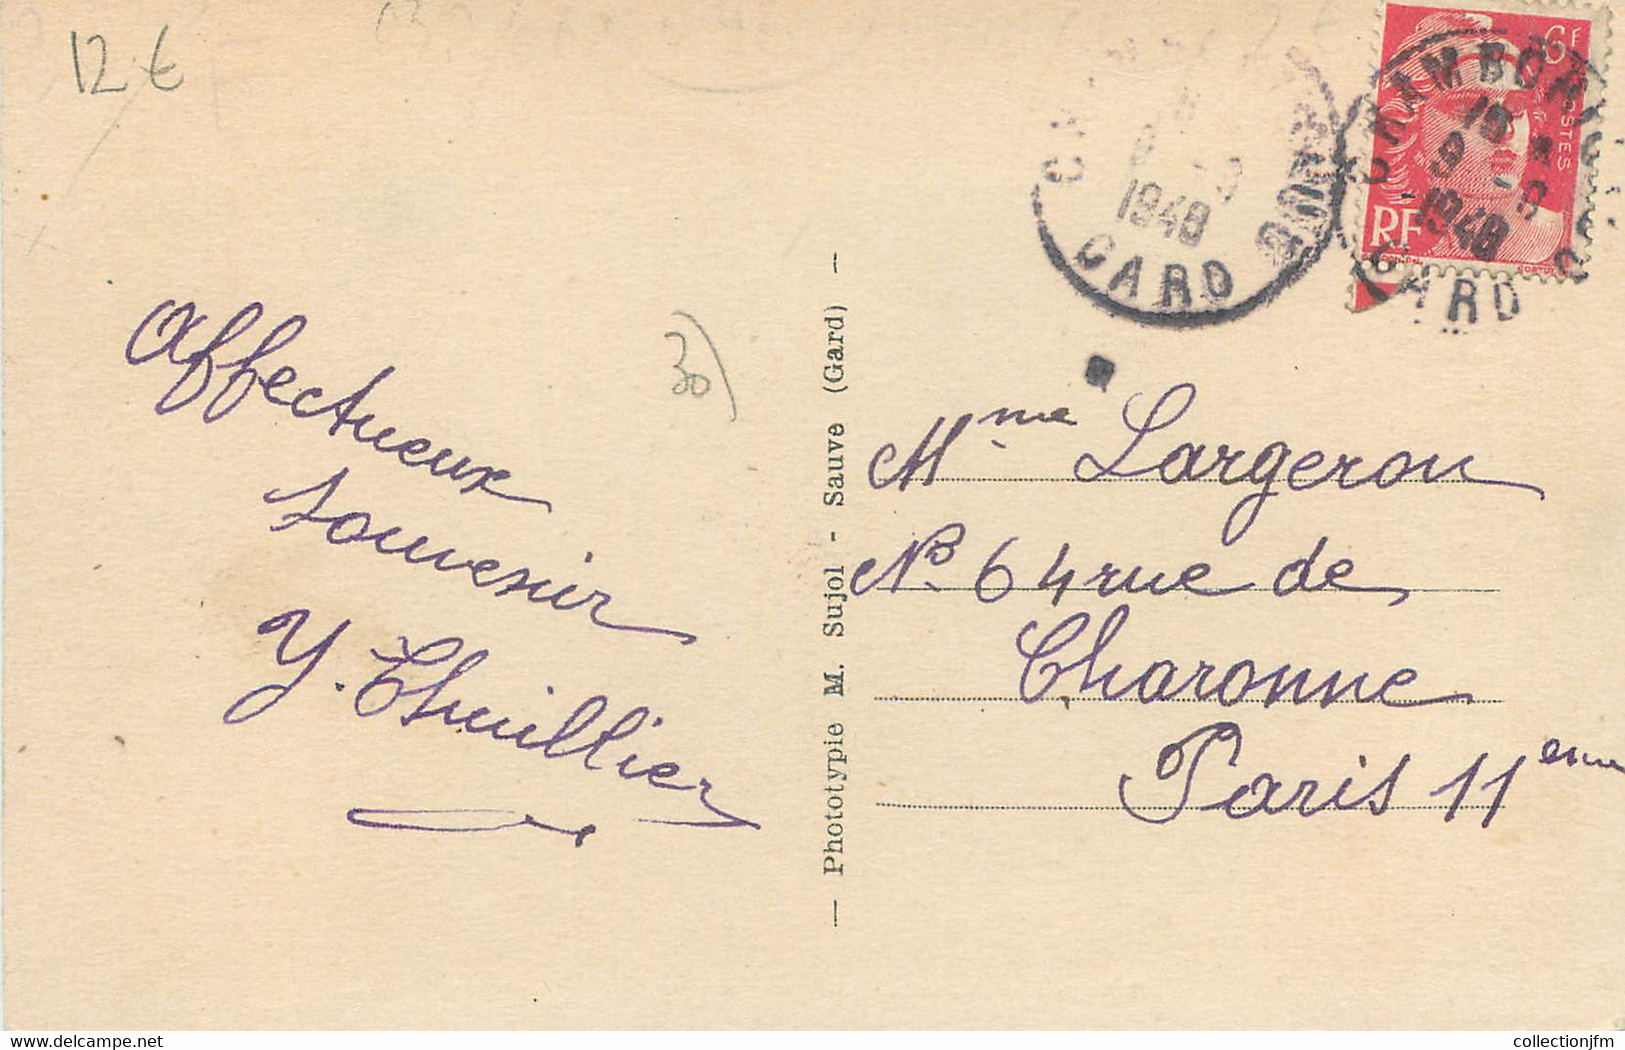 12 €
30)
Affectueux
souvenir
Y. Thuillier
— Phototypie M. Sujol - Sauve (Gard) —
CHAMBORIGAUD
18
9 - 9
1948
GARD
6F
POSTES
RF
1948
GARD
Mme Largeron
No 64 rue de
Charonne
Paris 11eme
www.delcampe.net
collectionjfm